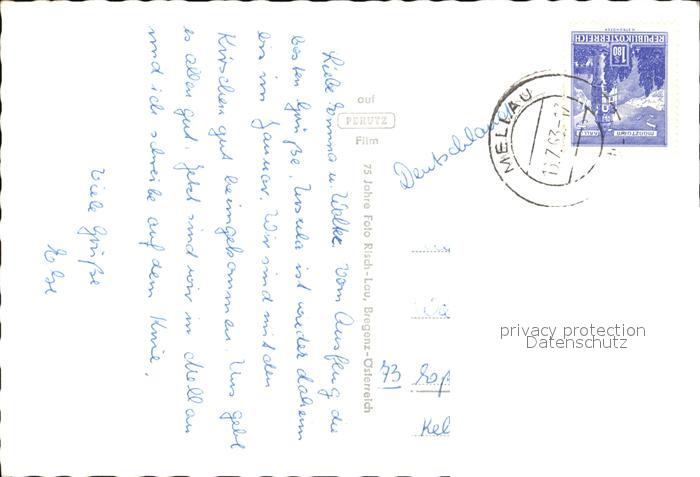 Liebe Emma u. Walter. Vom Ausflug die
besten Grüße. Ursula ist wieder daheim
bis im Januar. Wir sind mit den
Kirschen gut heimgekommen. Uns geht
es allen gut. Jetzt sind wir in Mellau
und ich schreibe auf dem Knie.
Viele Grüße
Else
auf
PERUTZ
Film
75 Jahre Foto Risch-Lau, Bregenz-Österreich
Deutschland
73
Kel
MELLAU
REPUBLIK ÖSTERREICH
1.80
MÜNZTURM
privacy protection
Datenschutz